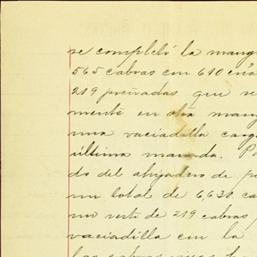 se completó la mang
565 cabras con 610 en
219 preñadas que se
mente en otra mang
una vaciadilla carg
última manada. Po
do del ahijadero de p
un total de 6,631 ca
un resto de 219 cabras
vaciadilla con la
las cabras